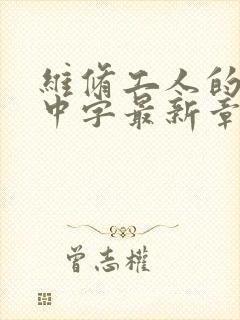 維脩工人的
中字最新章
曾志權